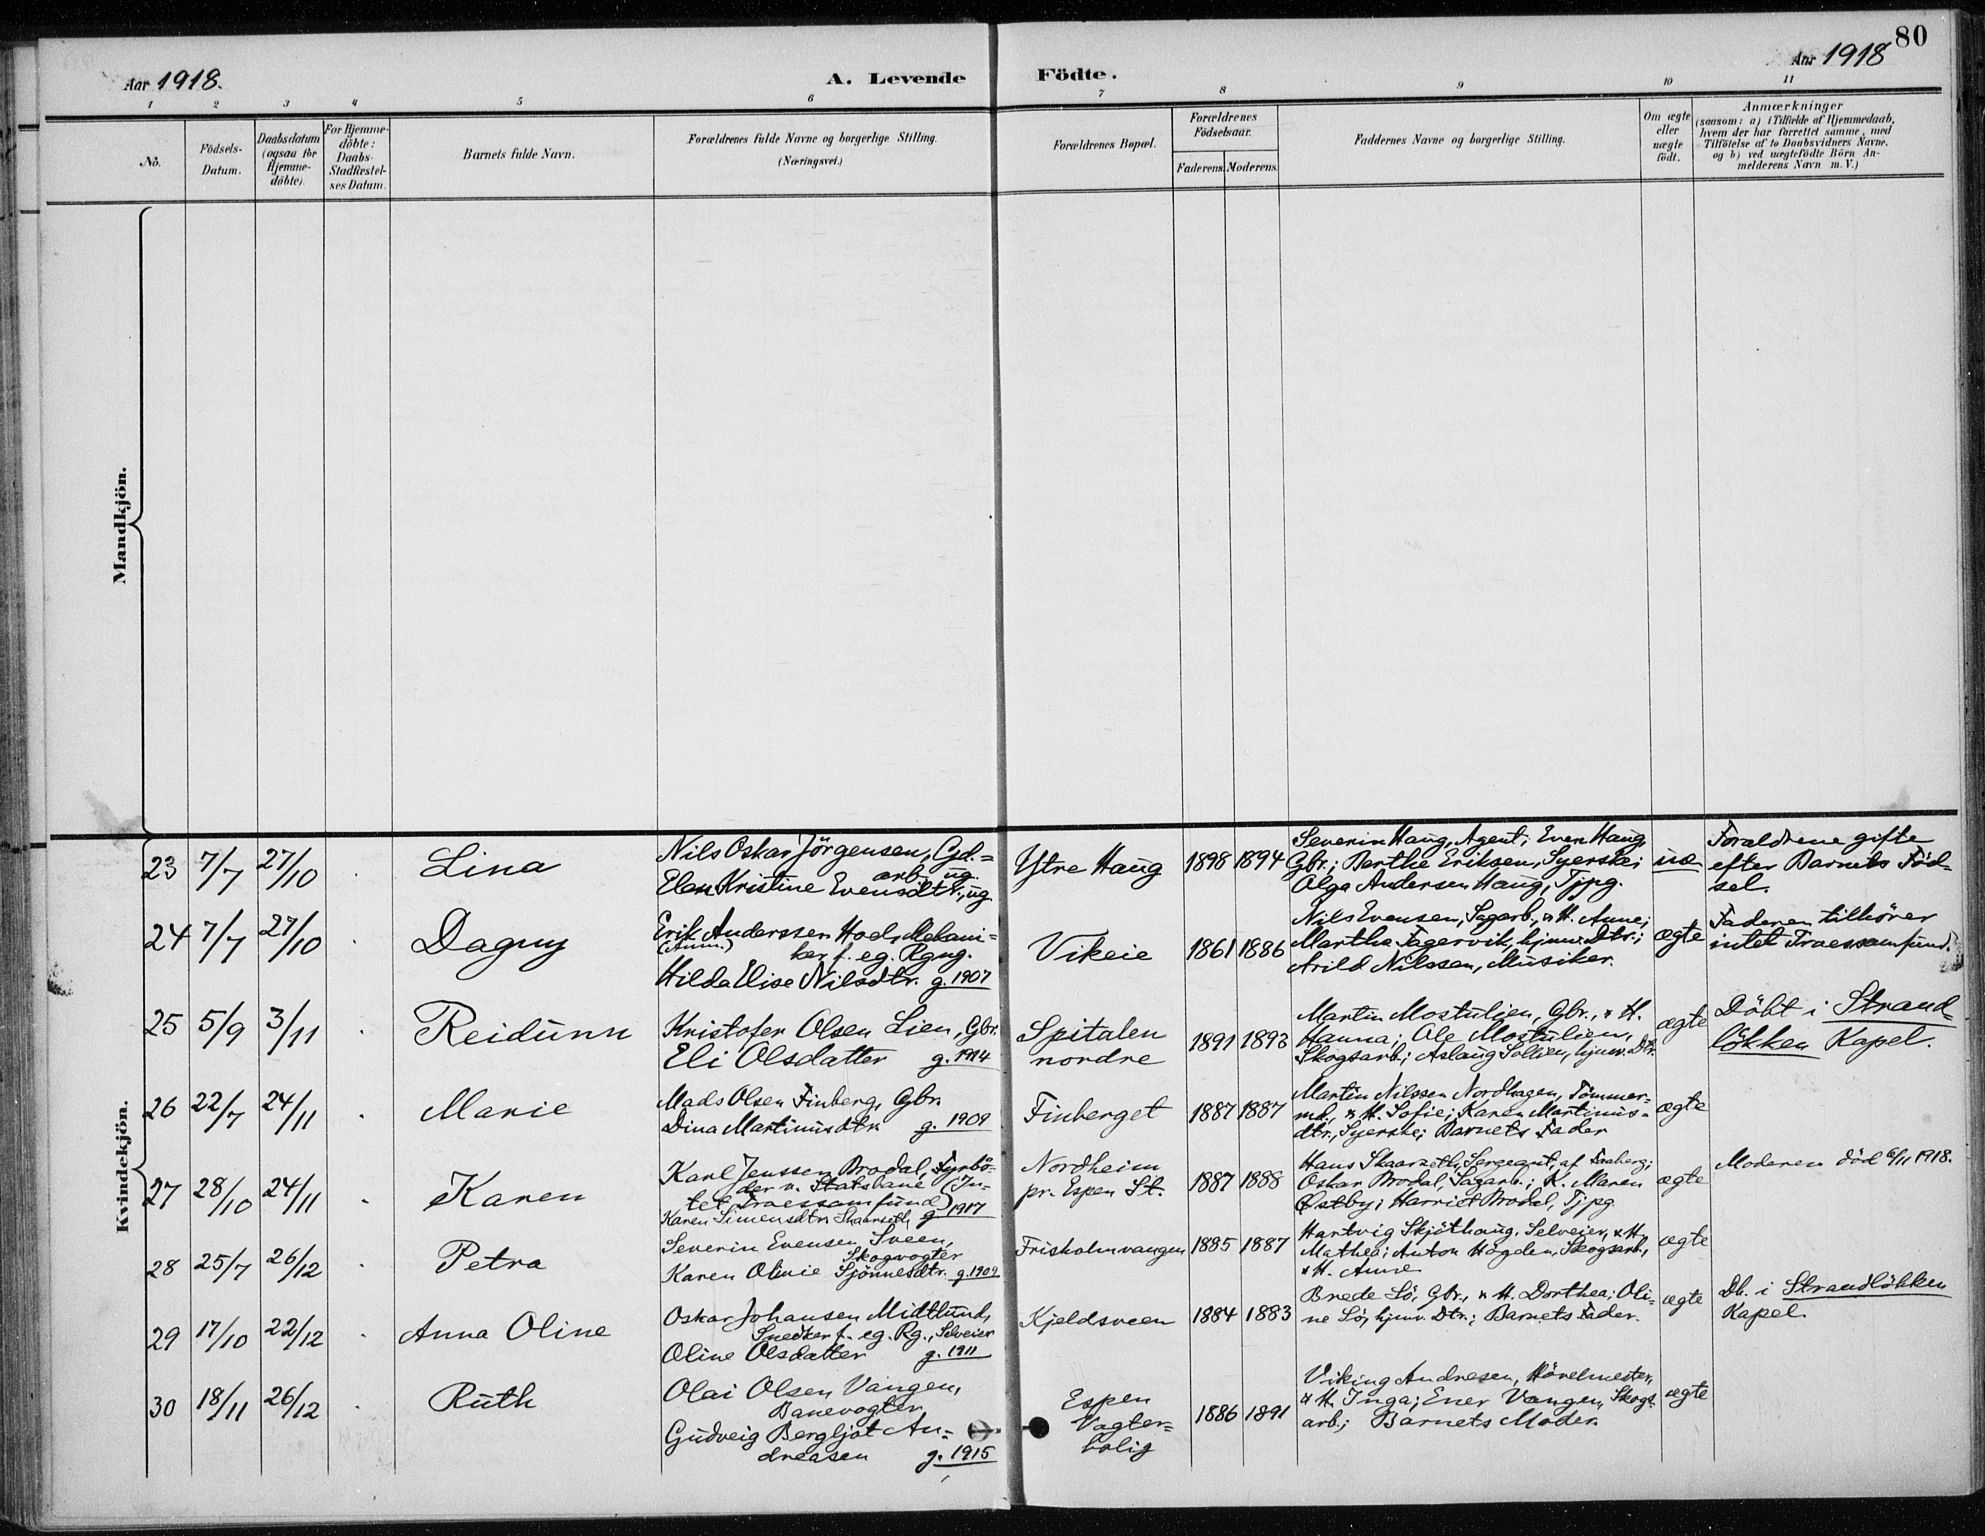 80
Aar 1918.
A. Levende
Födte.
Aar 1918
1 2 3 4 5 6 7 8 9 10 11
No.
Födsels-
Datum.
Daabsdatum
(ogsaa for
Hjemme-
döbte).
For Hjemme-
döbte:
Daabs-
Stadfæstel-
ses Datum.
Barnets fulde Navn.
Forældrenes fulde Navne og borgerlige Stilling.
(Næringsvei.)
Forældrenes Bopæl.
Forældrenes
Födselsaar.
Faderens. Moderens.
Faddernes Navne og borgerlige Stilling.
Om ægte
eller
uægte
födt.
Anmærkninger
(saasom: a) i Tilfælde af Hjemmedaab,
hvem der har forrettet samme, med
Tilföielse af to Daabsvidners Navne,
og b) ved uægtefödte Börn An-
melderens Navn m. V.)
Mandkjön.
Kvindekjön.
23 7/7 27/10 Lina
Nils Oskar Jörgensen, Gd.=
arb. ug.
Elen Kristine Evensdtr., ug.
Ytre Haug 1898 1894
Severin Haug, Agent; Even Haug,
Gbr.; Berthe Eriksen, Syerske;
Olga Andersen Haug, Tjpg.
uæ
Forældrene gifte
efter Barnets Föd-
sel.
24 7/7 27/10 Dagny
Erik Anderssen Hoel, Mekani=
ker f. eg. Rgng.
Hilda Elise Nilsdtr. g. 1907
Vikeie 1861 1886
Nils Evensen, Sagarb., & H. Anne;
Martha Fagervik, hjmv. Dtr.;
Arild Nilssen, Musiker.
ægte
Faderen tilhörer
intet Troessamfund.
25 5/9 3/11 Reidunn
Kristofer Olsen Lien, Gbr.
Eli Olsdatter g. 1914
Spitalen
nordre
1891 1893
Martin Mostulien, Gbr., & H.
Hanna; Ole Mostulien,
Skogsarb.; Aslaug Sollien, hjmv. Dtr.
ægte
Döbt i Strand-
lökken Kapel.
26 22/7 24/11 Marie
Mads Olsen Finberg, Gbr.
Dina Martinusdtr. g. 1909
Finberget 1887 1887
Martin Nilssen Nordhagen, Tömmer-
md., & H. Sofie; Karen Martinus-
dtr., Syerske; Barnets Fader
ægte
27 28/10 24/11 Karen
Karl Jenssen Brodal, Fyrbö-
der v. Statsbane (In-
tet Troessamfund)
Karen Simensdtr. Skaarseth, g. 1917
Nordheim
pr. Espen St.
1887 1888
Hans Skaarseth, Sergeant, af
Oskar Brodal, Sagarb.; K. Maren
Østby; Harriet Brodal, Tjpg.
ægte
Moderen död 6/11 1918.
28 25/7 26/12 Petra
Severin Evensen Sveen,
Skogvogter
Karen Olinie Sjönnesdtr. g. 1909
Frisholmvangen 1885 1887
Hartvig Skjöthaug, Selveier, & H.
Mathea; Anton Högden, Skogsarb.,
& H. Anne
ægte
29 17/10 22/12 Anna Oline
Oskar Johansen Midtlund,
Snedker f. eg. Rg., Selveier
Oline Olsdatter g. 1911
Kjeldsveen 1884 1883
Brede Lö, Gbr., & H. Dorthea; Oli-
ne Lö, hjmv. Dtr.; Barnets Fader.
ægte
Db. i Strandlökken
Kapel.
30 18/11 26/12 Ruth
Olai Olsen Vangen,
Banevogter
Gudveig Bergljot An-
dreasen g. 1915
Espen
Vogter-
bolig
1886 1891
Viking Andresen, Hövelmester,
& H. Inga; Ener Vangen, Skogs-
arb.; Barnets Moder.
ægte